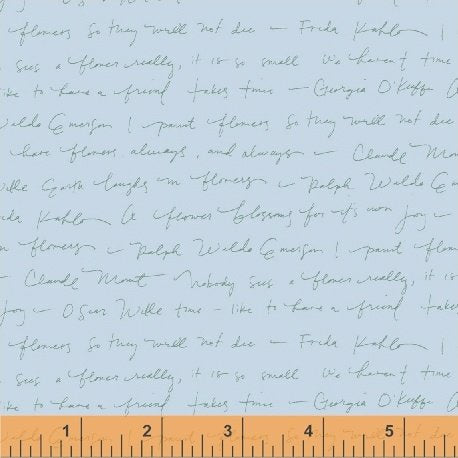 flowers so they will not die — Frida Kahlo I
sees a flower really, it is so small we haven't time
like to have a friend takes time — Georgia O'Keeffe
Waldo Emerson I paint flowers so they will not die
have flowers always, and always — Claude Mon
Wilde Earth laughs in flowers — Ralph Waldo Em
Frida Kahlo A flower blossoms for it's own joy —
in flowers — Ralph Waldo Emerson I paint flow
— Claude Monet Nobody sees a flower really, it is
joy — Oscar Wilde time – like to have a friend takes
flowers so they will not die — Frida Kahlo I
sees a flower really, it is so small we haven't time
like to have a friend takes time — Georgia O'Keeffe
1 2 3 4 5